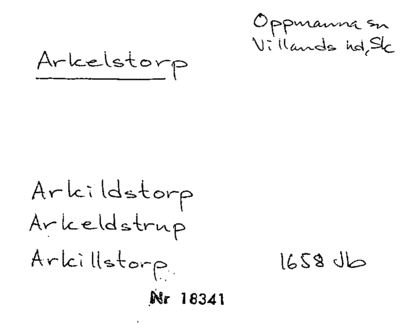 Oppmanna sn
Villands hd, Sk
Arkelstorp
Arkildstorp
Arkeldstrup
Arkillstorp 1658 Jb
Nr 18341